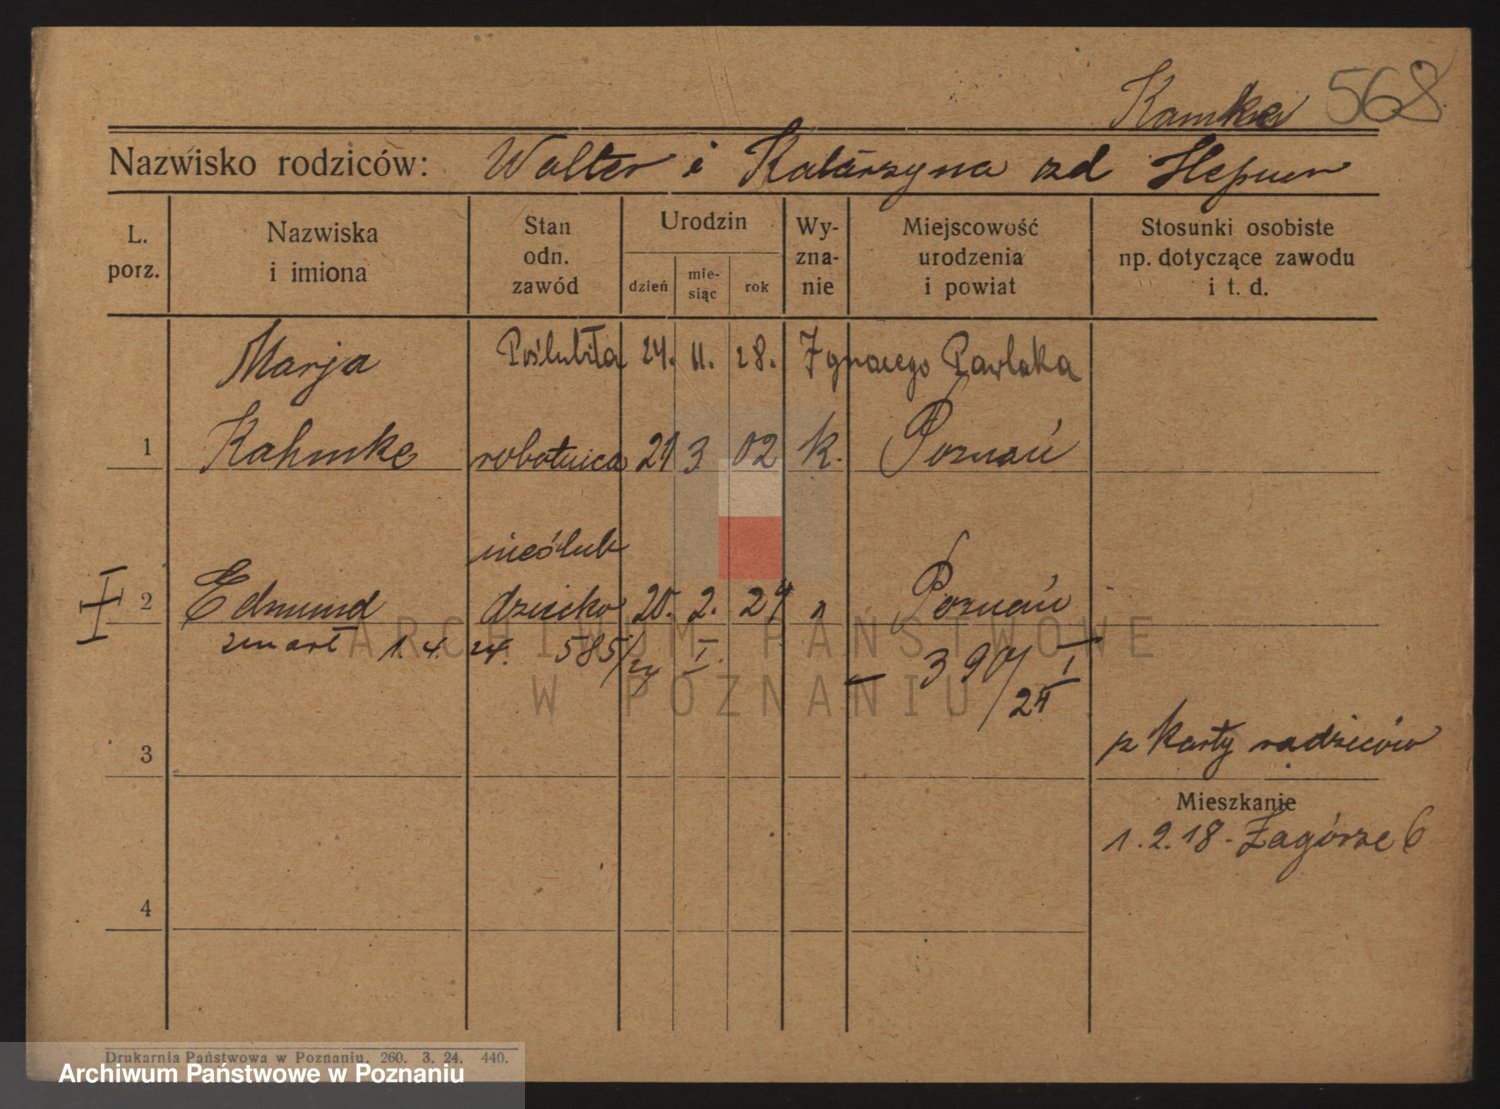 Kamke 568
Nazwisko rodziców: Walter i Katarzyna zd Hepner
L. porz.
Nazwiska i imiona
Stan odn. zawód
Urodzin
dzień
mie-siąc
rok
Wy-zna-nie
Miejscowość urodzenia i powiat
Stosunki osobiste np. dotyczące zawodu i t. d.
Marja Poślubiła 24. 11. 28. Ignacego Pawlaka
1 Kahmke robotnica 21 3 02 k. Poznań
nieślub
2 Edmund dziecko 20. 2. 24 " Poznań
zmarł 1. 4. 24. 585/24 I. – 390/24 I
3
z karty rodziców
Mieszkanie
1.2.18 - Zagórze 6
4
ARCHIWUM PAŃSTWOWE
W POZNANIU
Drukarnia Państwowa w Poznaniu. 260. 3. 24. 440.
Archiwum Państwowe w Poznaniu